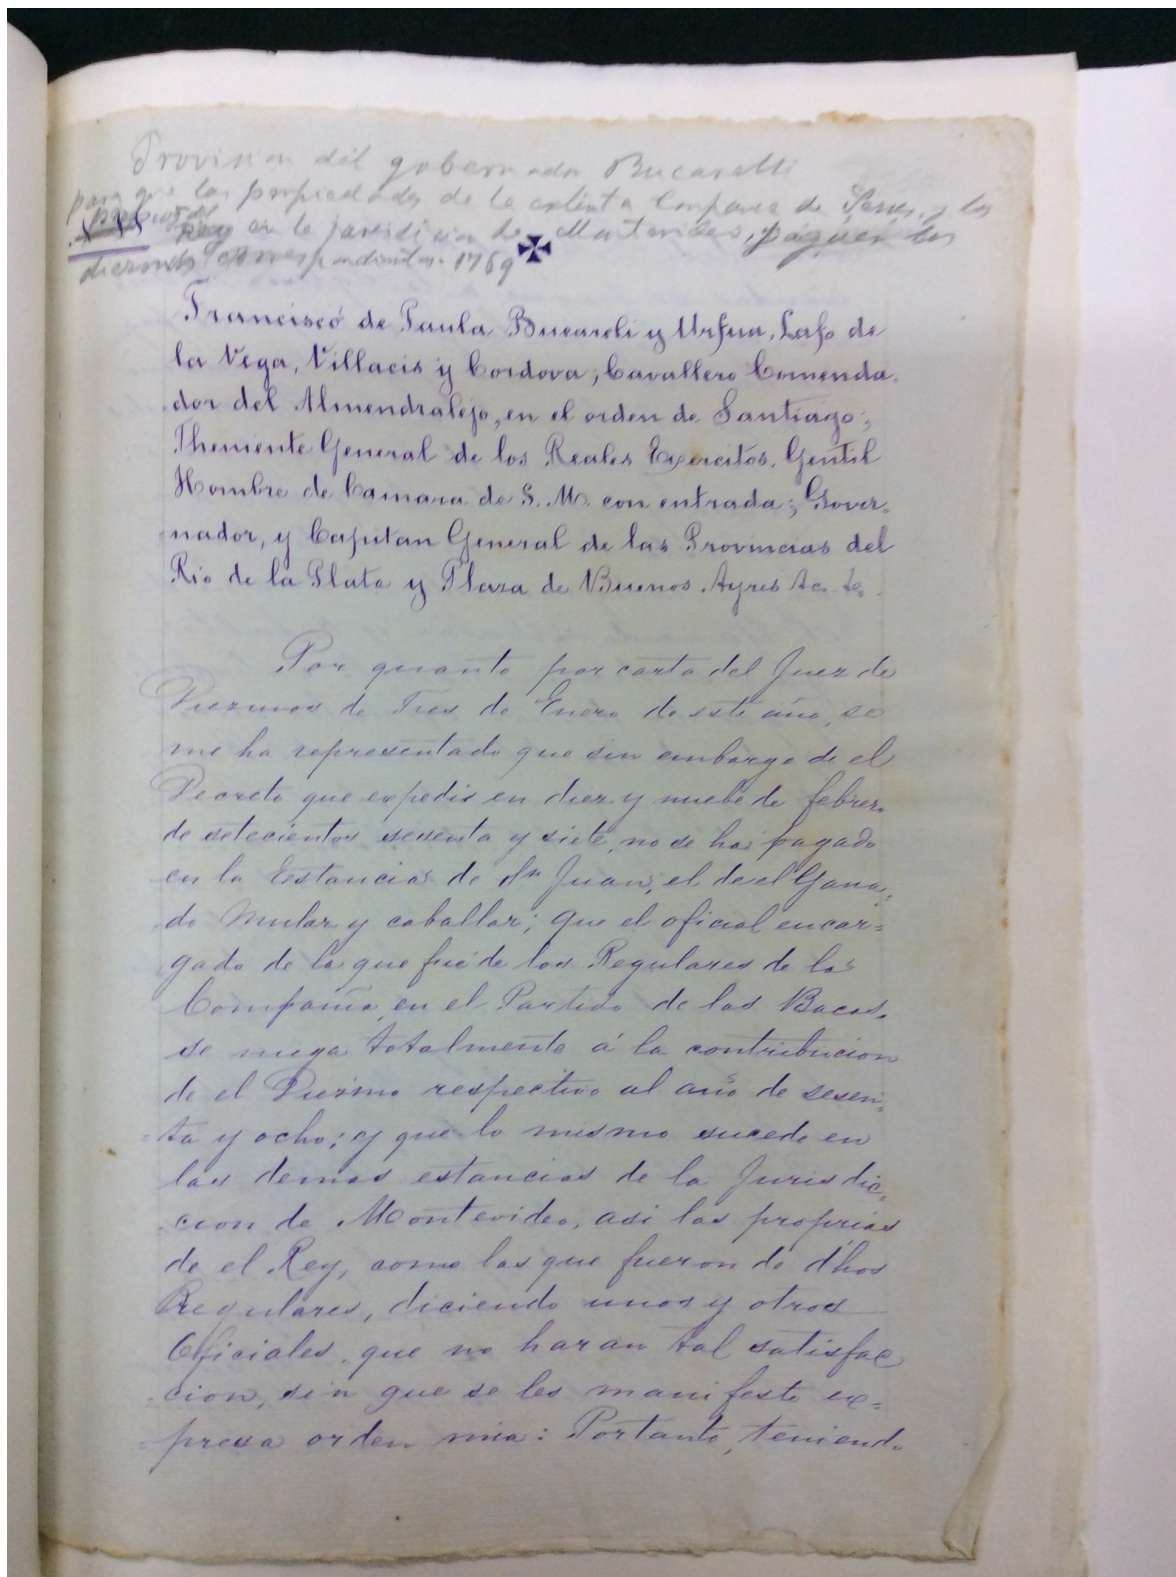 Provision del gobernador Bucarelli
para que las propiedades de la extinta Compañia de Jesus, y las
del Rey en la jurisdiccion de Montevideo, paguen los
diezmos correspondientes. 1769
Francisco de Paula Bucareli y Ursua, Laso de
la Vega, Villacis y Cordova; Cavallero Comenda-
dor del Almendralejo, en el orden de Santiago;
Theniente General de los Reales Exercitos, Gentil
Hombre de Camara de S. M. con entrada; Gover-
nador, y Capitan General de las Provincias del
Rio de la Plata y Plaza de Buenos Ayres &c. &c.
Por quanto por carta del Juez de
Diezmos de Tres de Enero de este año, se
me ha representado que sin embargo de el
Decreto que expedir en diez y nuebe de febrero
de setecientos sesenta y siete, no se ha pagado
en la Estancia de dn Juan, el de el Gana-
do Mular y caballar; que el oficial encar=
gado de la que fué de los Regulares de la
Compañia, en el Partido de las Bacas,
se niega totalmente á la contribucion
de el Diezmo respectivo al año de sesen=
=ta y ocho; y que lo mismo sucede en
las demas estancias de la Jurisdic=
=cion de Montevideo, asi las proprias
de el Rey, como las que fueron de dhos
Regulares, diciendo unos y otros
Oficiales, que no haran tal satisfac
=cion, sin que se les manifieste ex=
=presa orden mia: Portanto, teniendo